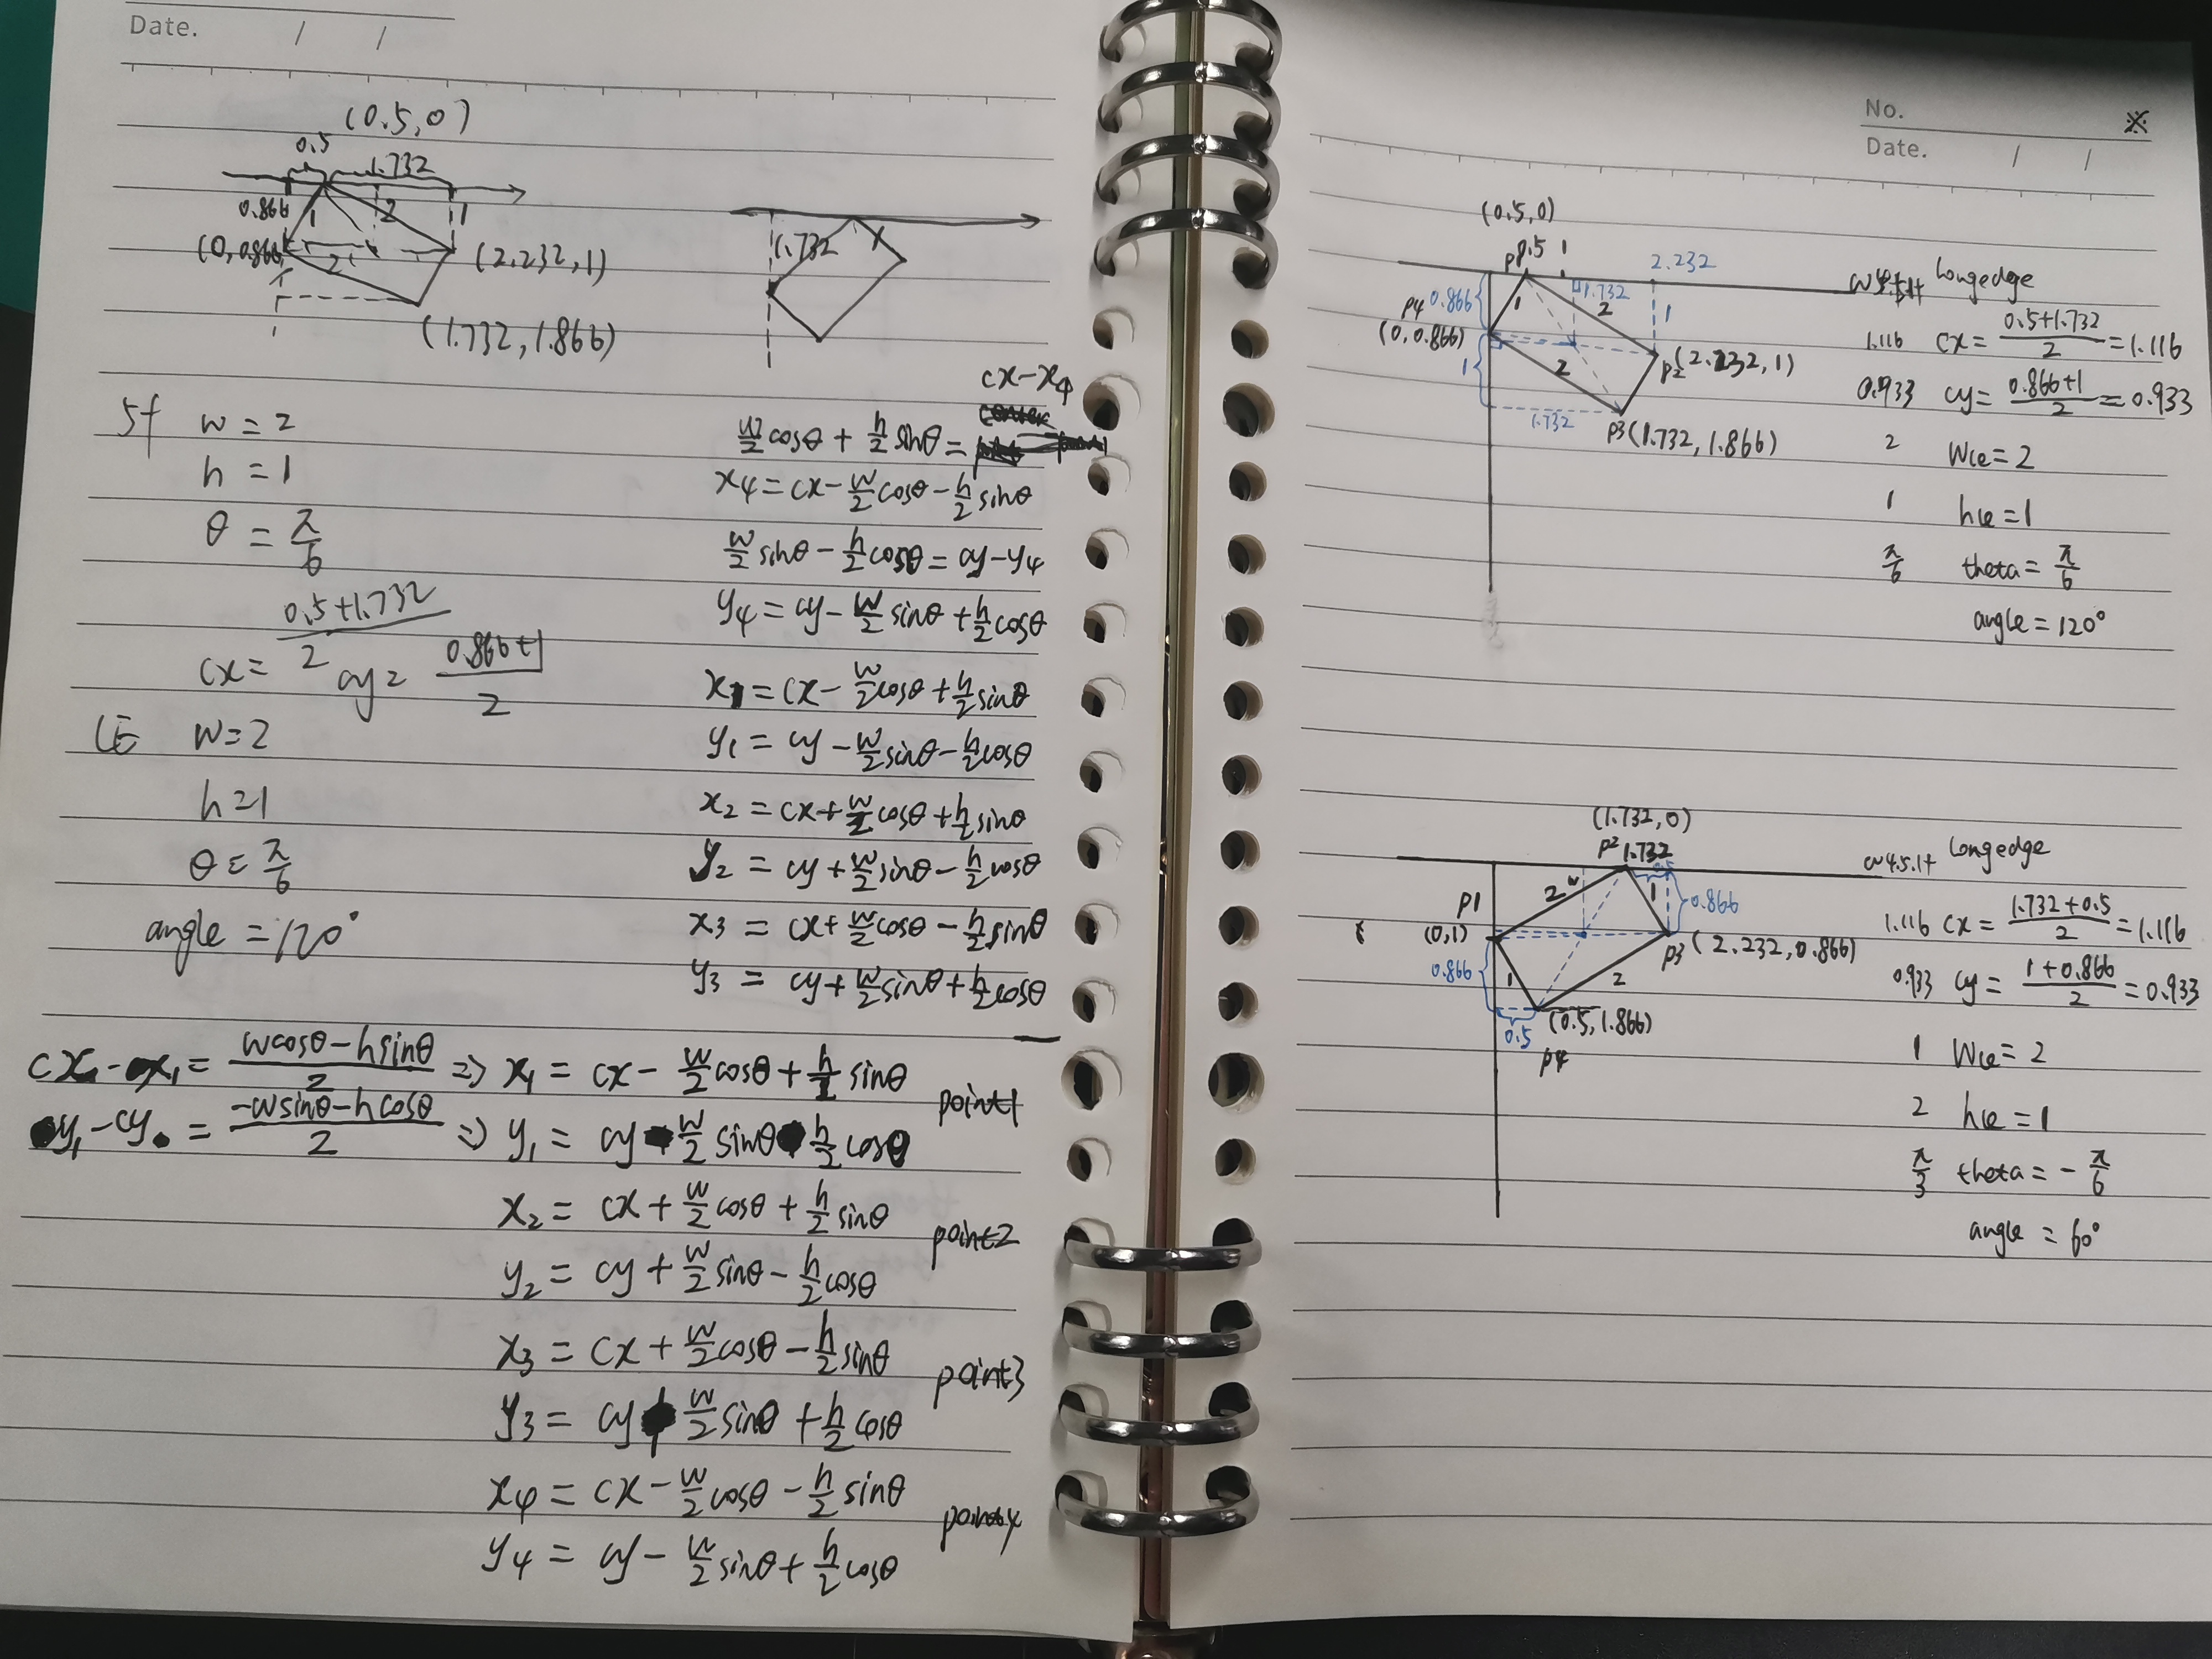 Date. / /
(0.5,0)
0.5
1.732
0.866 1 2 1
(0,0.866)
2
(2.232,1)
(1.732,1.866)
1.732 1
5f w=2
h=1
θ=π/6
cx=(0.5+1.732)/2 cy=(0.866+1)/2
LE w=2
h=1
θ=π/6
angle=120°
cx-x₄
w/2cosθ+h/2sinθ=
x₄=cx-w/2cosθ-h/2sinθ
w/2sinθ-h/2cosθ=cy-y₄
y₄=cy-w/2sinθ+h/2cosθ
x₁=cx-w/2cosθ+h/2sinθ
y₁=cy-w/2sinθ-h/2cosθ
x₂=cx+w/2cosθ+h/2sinθ
y₂=cy+w/2sinθ-h/2cosθ
x₃=cx+w/2cosθ-h/2sinθ
y₃=cy+w/2sinθ+h/2cosθ
cx-x₁=(wcosθ-hsinθ)/2 ⇒ x₁=cx-w/2cosθ+h/2sinθ point1
y₁-cy=(-wsinθ-hcosθ)/2 ⇒ y₁=cy-w/2sinθ-h/2cosθ
x₂=cx+w/2cosθ+h/2sinθ point2
y₂=cy+w/2sinθ-h/2cosθ
x₃=cx+w/2cosθ-h/2sinθ point3
y₃=cy+w/2sinθ+h/2cosθ
x₄=cx-w/2cosθ-h/2sinθ point4
y₄=cy-w/2sinθ+h/2cosθ
No. ※
Date. / /
(0.5,0)
p1 0.5 1 2.232
p4 0.866 1 1.732 2 1
(0,0.866)
1 2 p2(2.232,1)
1.732
p3(1.732,1.866)
longedge
1.116 cx=(0.5+1.732)/2=1.116
0.933 cy=(0.866+1)/2=0.933
2 Wle=2
1 hle=1
π/6 theta=π/6
angle=120°
(1.732,0)
p2 1.732
0.5
p1 2 w 1 0.866
(0,1) p3(2.232,0.866)
0.866 1 2
0.5 (0.5,1.866)
p4
4.5.1+ longedge
1.116 cx=(1.732+0.5)/2=1.116
0.933 cy=(1+0.866)/2=0.933
1 Wle=2
2 hle=1
π/3 theta=-π/6
angle=60°